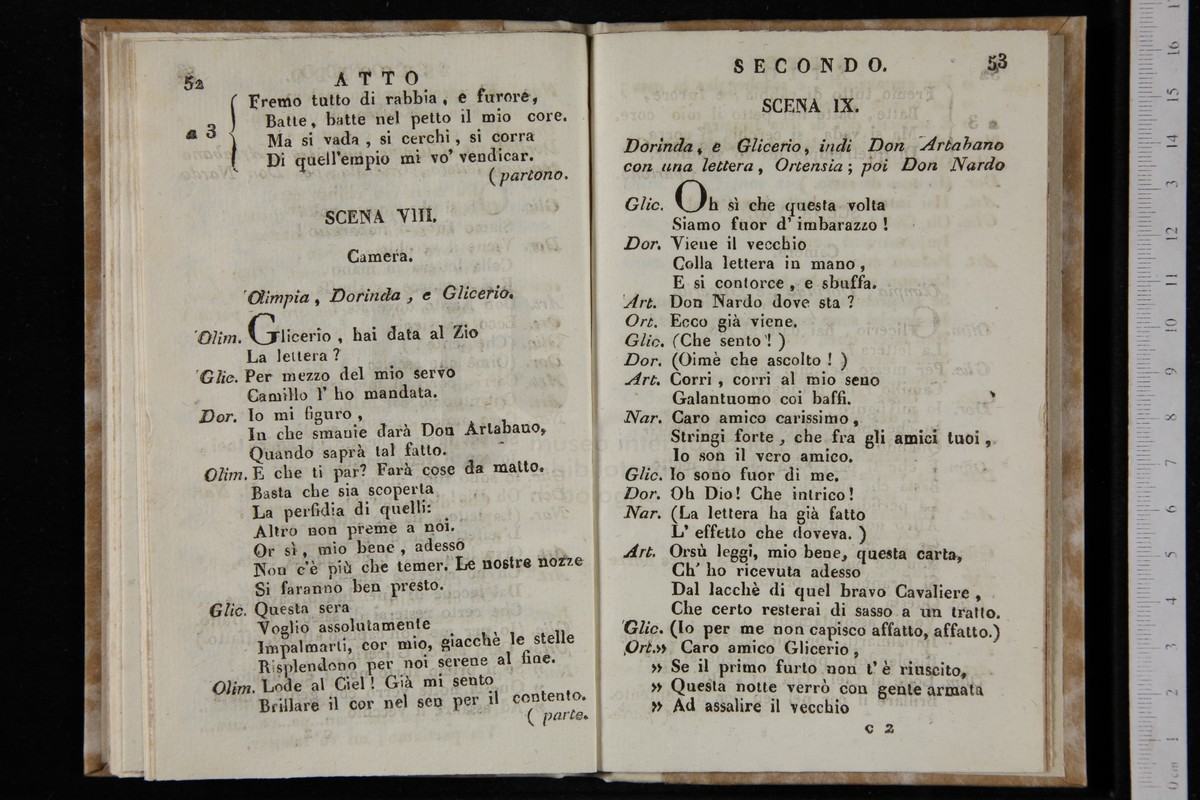 52
ATTO
a 3
Fremo tutto di rabbia, e furore,
Batte, batte nel petto il mio core.
Ma si vada, si cerchi, si corra
Di quell'empio mi vo' vendicar.
(partono.
SCENA VIII.
Camera.
Olimpia, Dorinda, e Glicerio.
Olim. Glicerio, hai data al Zio
La lettera?
Glic. Per mezzo del mio servo
Camillo l' ho mandata.
Dor. Io mi figuro,
In che smanie darà Don Artabano,
Quando saprà tal fatto.
Olim. E che ti par? Farà cose da matto.
Basta che sia scoperta
La perfidia di quelli:
Altro non preme a noi.
Or sì, mio bene, adesso
Non c'è più che temer. Le nostre nozze
Si faranno ben presto.
Glic. Questa sera
Voglio assolutamente
Impalmarti, cor mio, giacchè le stelle
Risplendono per noi serene al fine.
Olim. Lode al Ciel! Già mi sento
Brillare il cor nel sen per il contento.
(parte.
SECONDO.
53
SCENA IX.
Dorinda, e Glicerio, indi Don Artabano
con una lettera, Ortensia; poi Don Nardo
Glic. Oh sì che questa volta
Siamo fuor d' imbarazzo!
Dor. Viene il vecchio
Colla lettera in mano,
E si contorce, e sbuffa.
Art. Don Nardo dove sta?
Ort. Ecco già viene.
Glic. (Che sento!)
Dor. (Oimè che ascolto!)
Art. Corri, corri al mio seno
Galantuomo coi baffi.
Nar. Caro amico carissimo,
Stringi forte, che fra gli amici tuoi,
Io son il vero amico.
Glic. Io sono fuor di me.
Dor. Oh Dio! Che intrico!
Nar. (La lettera ha già fatto
L' effetto che doveva.)
Art. Orsù leggi, mio bene, questa carta,
Ch' ho ricevuta adesso
Dal lacchè di quel bravo Cavaliere,
Che certo resterai di sasso a un tratto.
Glic. (Io per me non capisco affatto, affatto.)
Ort.» Caro amico Glicerio,
» Se il primo furto non t' è riuscito,
» Questa notte verrò con gente armata
» Ad assalire il vecchio
C 2